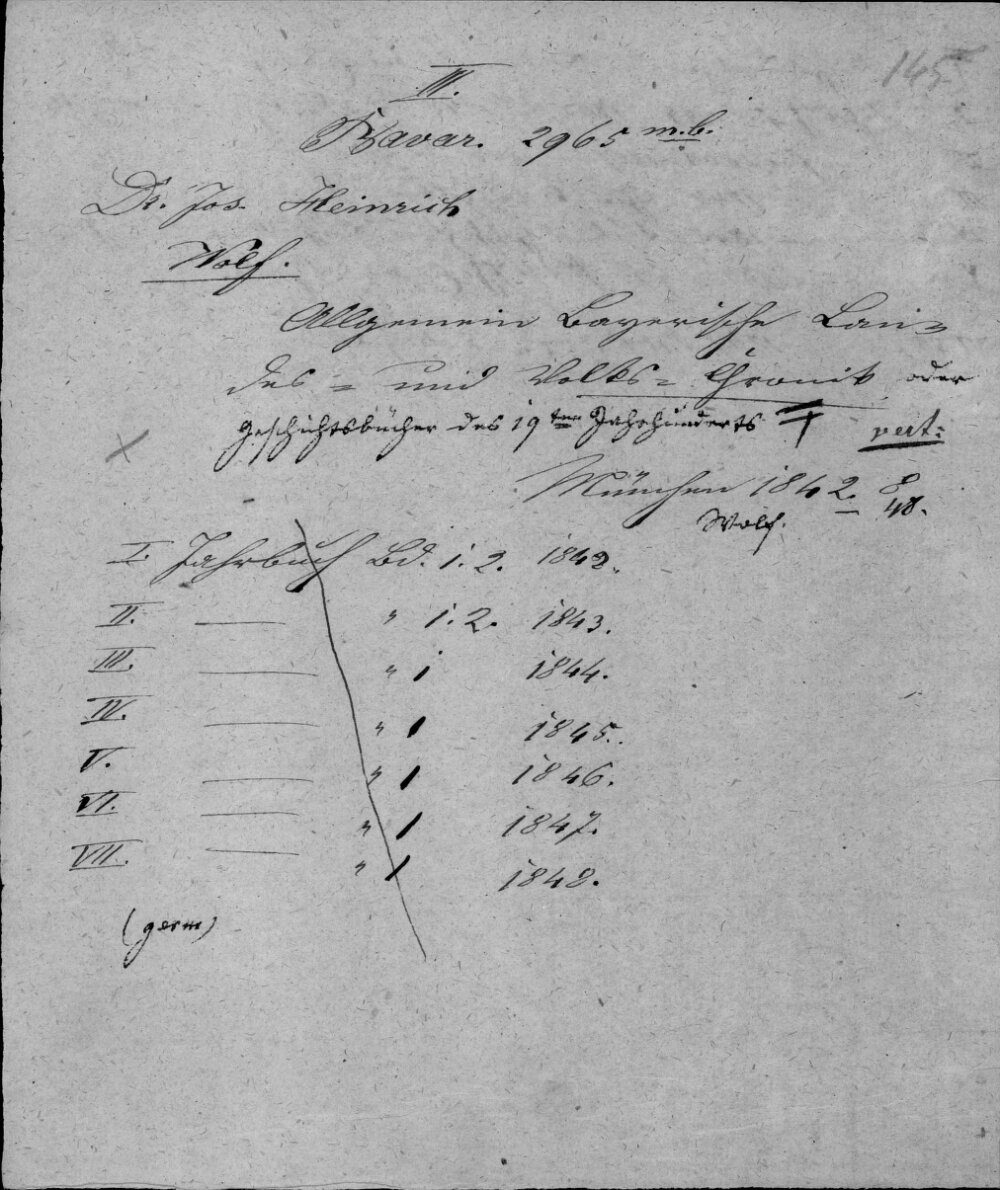 145
III.
Bavar. 2965 m.b.
Dr. Jos. Heinrich
Wolf.
Allgemein Bayerische Lan-
des- und Volks-Chronik oder
Geschichtsbücher des 19ten Jahrhunderts vert:
München 1842. 8
48.
Wolf.
I. Jahrbuch Bd. 1. 2. 1842.
II. — " 1. 2. 1843.
III. — " 1 1844.
IV. — " 1 1845.
V. — " 1 1846.
VI. — " 1 1847.
VII. — " 1 1848.
(germ)